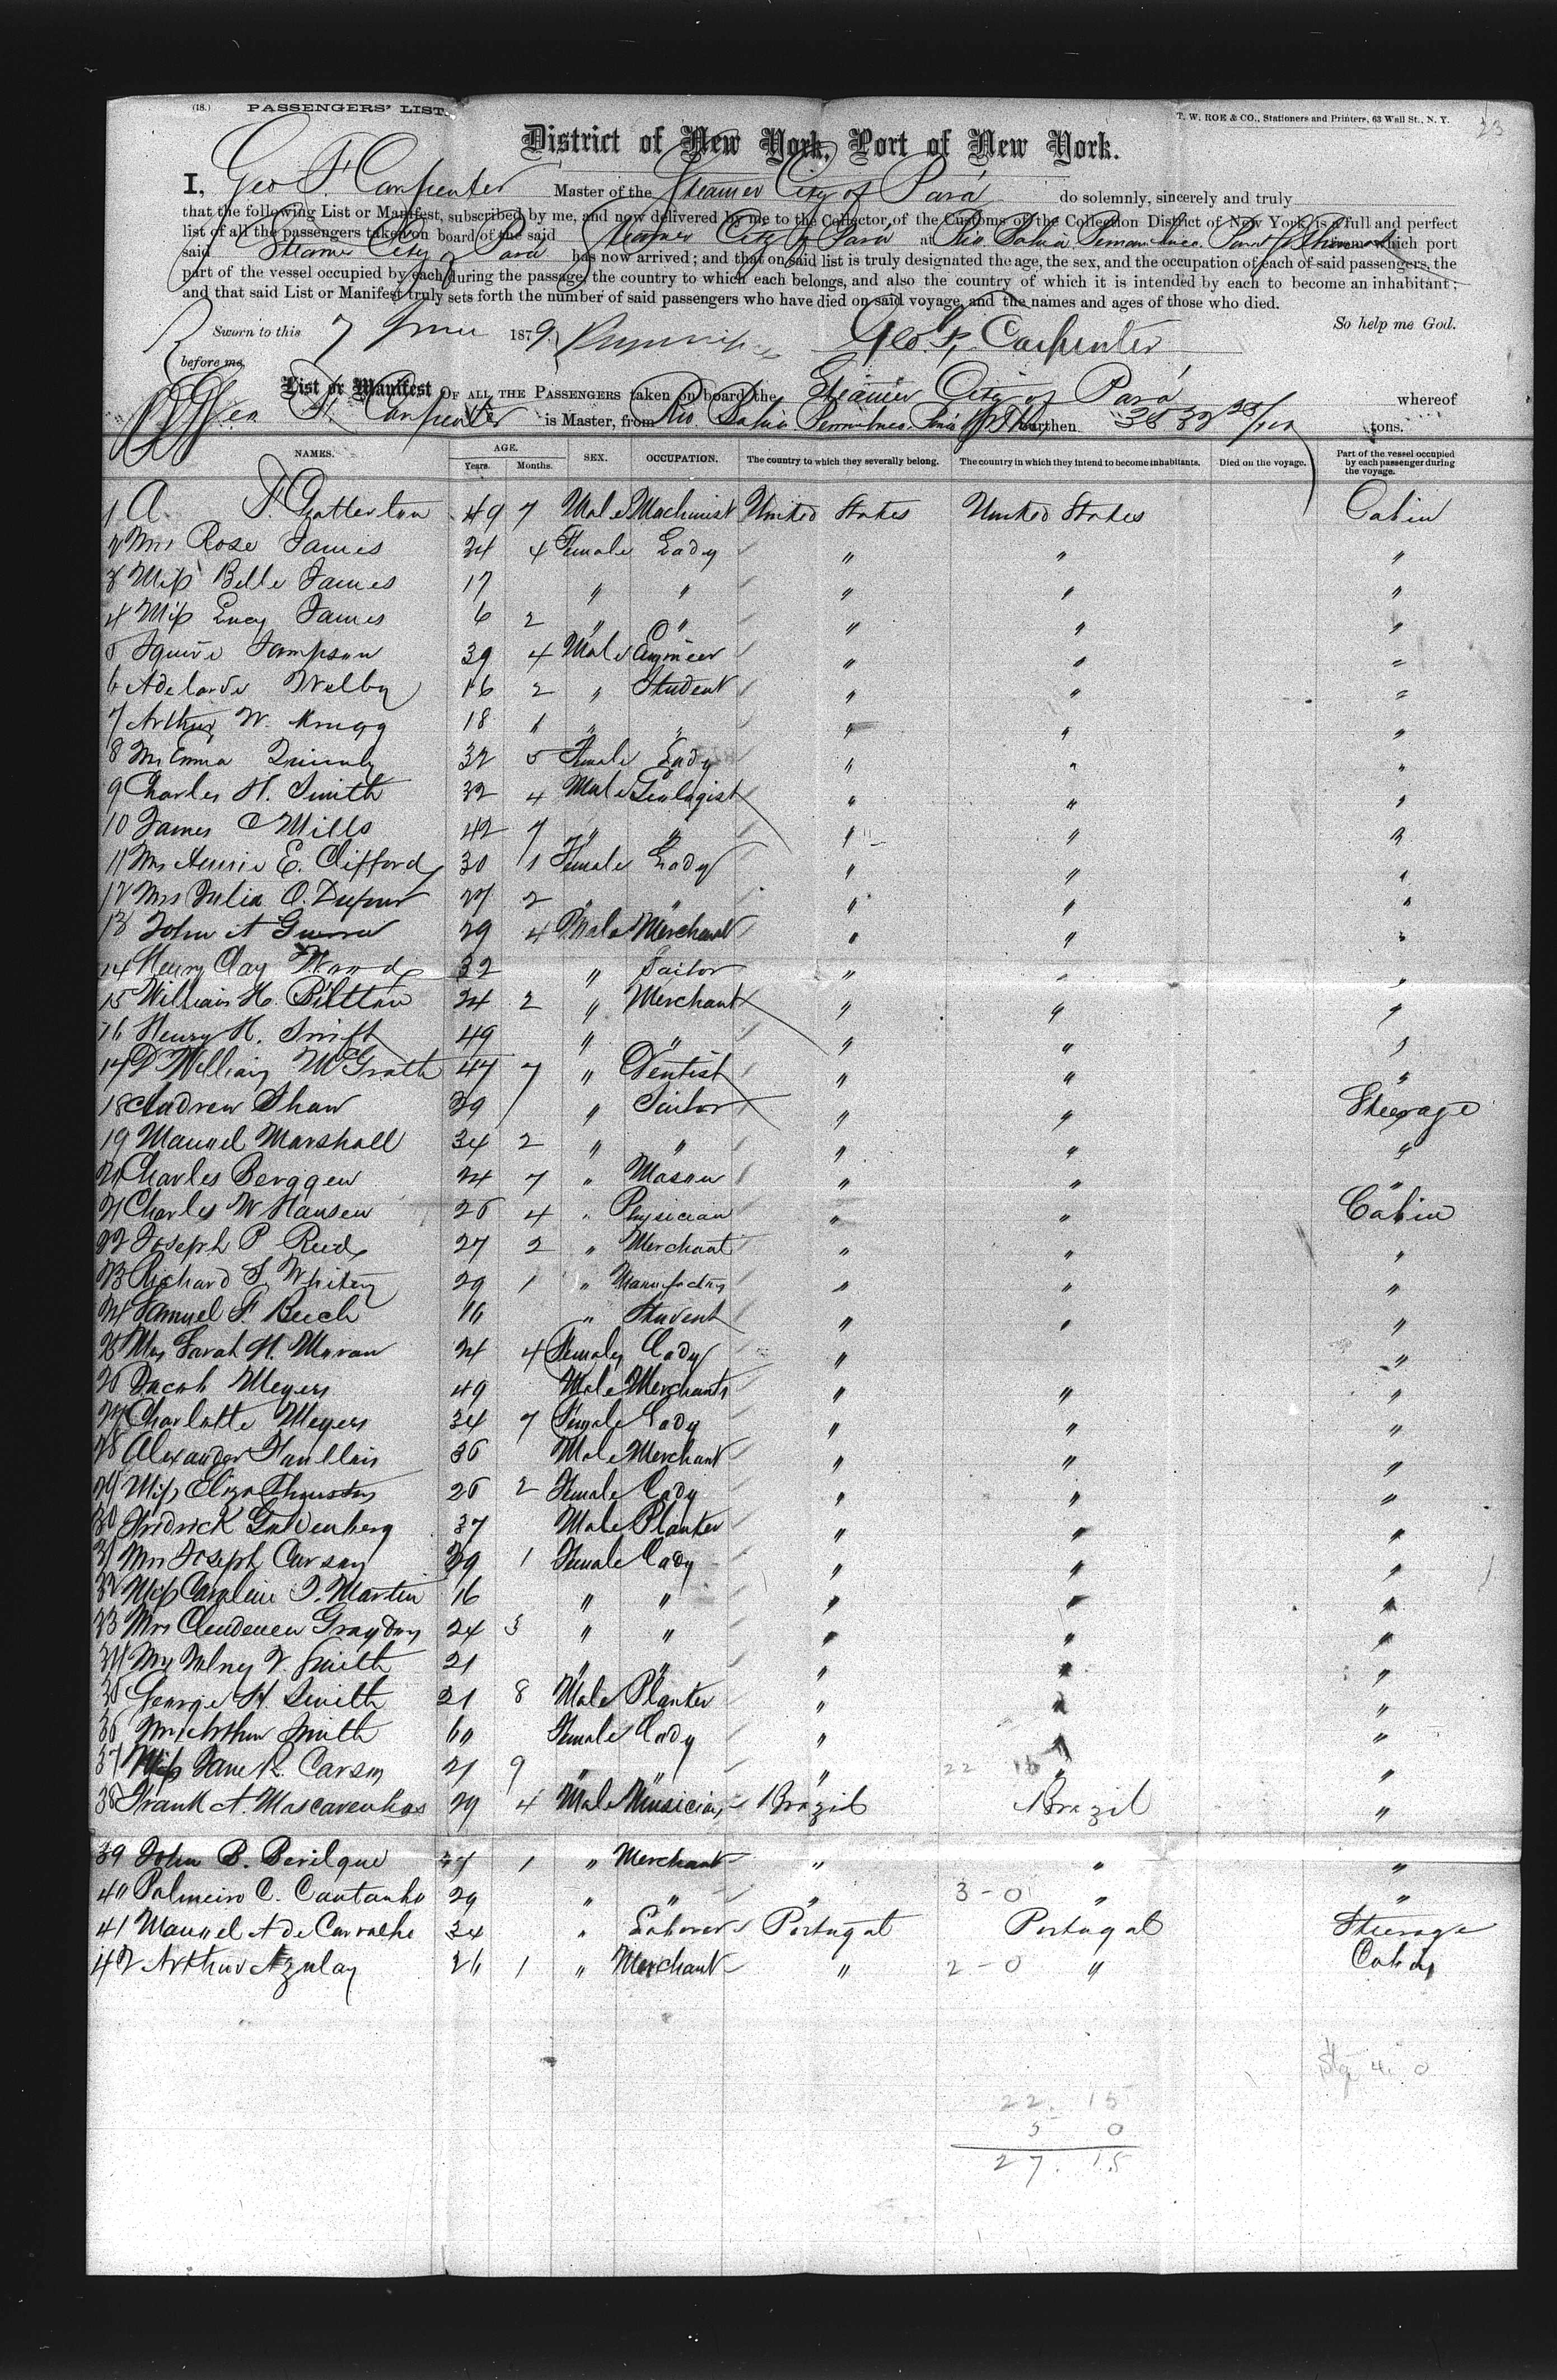 (18.) PASSENGERS' LIST.
T. W. ROE & CO., Stationers and Printers, 63 Wall St., N. Y.
23
District of New York, Port of New York.
I, Geo F Carpenter Master of the Steamer City of Pará do solemnly, sincerely and truly
that the following List or Manifest, subscribed by me, and now delivered by me to the Collector of the Customs of the Collection District of New York, is a full and perfect
list of all the passengers taken on board of the said Steamer City of Pará at Rio Bahia Pernambuco Pará from which port
said Steamer City of Pará has now arrived; and that on said list is truly designated the age, the sex, and the occupation of each of said passengers, the
part of the vessel occupied by each during the passage, the country to which each belongs, and also the country of which it is intended by each to become an inhabitant;
and that said List or Manifest truly sets forth the number of said passengers who have died on said voyage, and the names and ages of those who died.
So help me God.
Sworn to this 7 June 1879 Geo. F. Carpenter
before me
List or Manifest OF ALL THE PASSENGERS taken on board the Steamer City of Pará whereof
Geo F. Carpenter is Master, from Rio Bahia Pernambuco Pará burthen 3532 25/100 tons.
NAMES. AGE. Years. Months. SEX. OCCUPATION. The country to which they severally belong. The country in which they intend to become inhabitants. Died on the voyage. Part of the vessel occupied by each passenger during the voyage.
1 A F. Gatterton 49 7 Male Machinist United States United States Cabin
2 Mrs Rose James 34 4 Female Lady " " "
3 Miss Belle James 17 " " " " "
4 Miss Lucy James 6 2 " " " " "
5 Squire Sampson 39 4 Male Engineer " " "
6 Adelarde Welby 16 2 " Student " " "
7 Arthur W. 18 " " " " "
8 Mrs Emma Quimby 32 5 Female Lady " " "
9 Charles H. Smith 32 4 Male Geologist " " "
10 James C Mills 42 7 " " " " "
11 Mrs Annie E. Clifford 30 1 Female Lady " " "
12 Mrs Julia O. 27 2 " " " " "
13 John A 29 4 Male Merchant " " "
14 Henry Clay Wood 32 " Sailor " " "
15 William H. 24 2 " Merchant " " "
16 Henry H. Swift 49 " " " " "
17 Dr William McGrath 47 7 " Dentist " " "
18 Andrew Shaw 39 " Sailor " " Steerage
19 Manuel Marshall 34 2 " " " " "
20 Charles Berggen 24 7 " Mason " " "
21 Charles W Hansen 26 4 " Physician " " Cabin
22 Joseph P Reed 27 2 " Merchant " " "
23 Richard S Whitey 29 1 " " " "
24 Samuel F. Beech 16 " Student " " "
25 Mrs Sarah H. Moran 24 4 Female Lady " "
26 Jacob Meyers 49 Male Merchant " " "
27 Charlotte Meyers 34 7 Female Lady " " "
28 Alexander 36 Male Merchant " " "
29 Miss Eliza 26 2 Female Lady " " "
30 Fridrick Guldenberg 37 Male Planter " " "
31 Mrs Joseph Carson 39 1 Female Lady " " "
32 Miss Caroline J. Martin 16 " " " " "
33 Mrs Clendenen Graydon 24 3 " " " " "
34 V. Smith 21 " " " " "
35 George H. Smith 21 8 Male Planter " " "
36 Mrs Arthur Smith 60 Female Lady " " "
37 Miss Jane R. Carson 21 9 " " " 22 15 " "
38 Frank A. Mascarenhas 29 4 Male Musician Brazil Brazil "
39 John B. Bevilque 37 1 " Merchant " " "
40 Palmeiro C. Cantanho 29 " " " 3-0 " "
41 Manuel A de Carvalho 34 " Laborer Portugal Portugal Steerage
42 Arthur Azulay 26 1 " Merchant " 2-0 " Cabin
Stg 4. 0
22. 15
5 0
27. 15